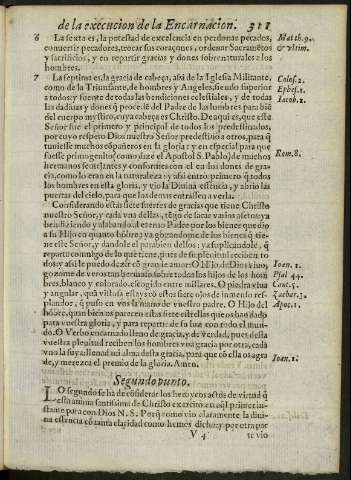 de la execucion de la Encarnacion. 311
6 La sexta es, la potestad de excelencia en perdonar pecados,
conuertir pecadores, trocar sus coraçones, ordenar Sacramẽtos
y sacrificios, y en repartir gracias y dones sobrenaturales a los
hombres.
Matth. 9.
& vltim.
7 La septima es, la gracia de cabeça, assi de la Iglesia Militante,
como de la Triunfante, de hombres y Angeles, siendo superior
a todos y fuente de todas las bendiciones celestiales, y de todas
las dadiuas y dones q̃ procedẽ del Padre de las lumbres para biẽ
del cuerpo mystico, cuya cabeça es Christo. De aqui es, que este
Señor fue el primero y principal de todos los predestinados,
por cuyo respeto Dios nuestro Señor predestinò a otros, para q̃
tuuiesse muchos cõpañeros en la gloria: y en especial para que
fuesse primogenito (como dize el Apostol S. Pablo) de muchos
hermanos semejantes y conformes con el en los dones de gra-
cia, como lo eran en la naturaleza: y assi entrò primero q̃ todos
los hombres en esta gloria, y vio la Diuina essencia, y abrio las
puertas del cielo, para que los demas entrassen a verla.
Colos. 2.
Ephes. 1.
Iacob. 1.
Rom. 8.
Considerando estas siete suertes de gracias que tiene Christo
nuestro Señor, y cada vna dellas, tẽgo de sacar varios afetos; ya
bendiziendo y alabando al eterno Padre por los bienes que dio
a su Hijo en quanto hõbre: ya gozandome de los bienes q̃ tie-
ne este Señor, y dandole el parabien dellos: ya suplicandole, q̃
reparta conmigo de lo que tiene, pues de su plenitud reciben to-
dos: y assi le puedo dezir cõ grande amor: O Hijo de Dios viuo,
gozome de veros tan hermoso sobre todos los hijos de los hom
bres, blanco y colorado, escogido entre millares. O piedra viua
y angular,
Ioan. 1.
Psal. 44.
Cant. 5.
Zachar. 3.
Apoc. 1.
O Verbo encarnado lleno de gracia, y de verdad, pues de la
vuestra plenitud reciben los hombres vna gracia por otra, cada
vno la suya, llenad mi alma desta gracia, para que cõ ella os agra
de, y merezca el premio de la gloria. Amen.
Ioan. 1.
Segundo punto.
LO segundo se ha de cõsiderar los heroycos actos de virtud q̃
esta anima santissima de Christo exercitò en aq̃l primer in-
stante para con Dios N. S. Porq̃ como vio claramente la diui-
na essencia cõ tanta claridad como hemos dicho; y por otra par
V 4 te vio